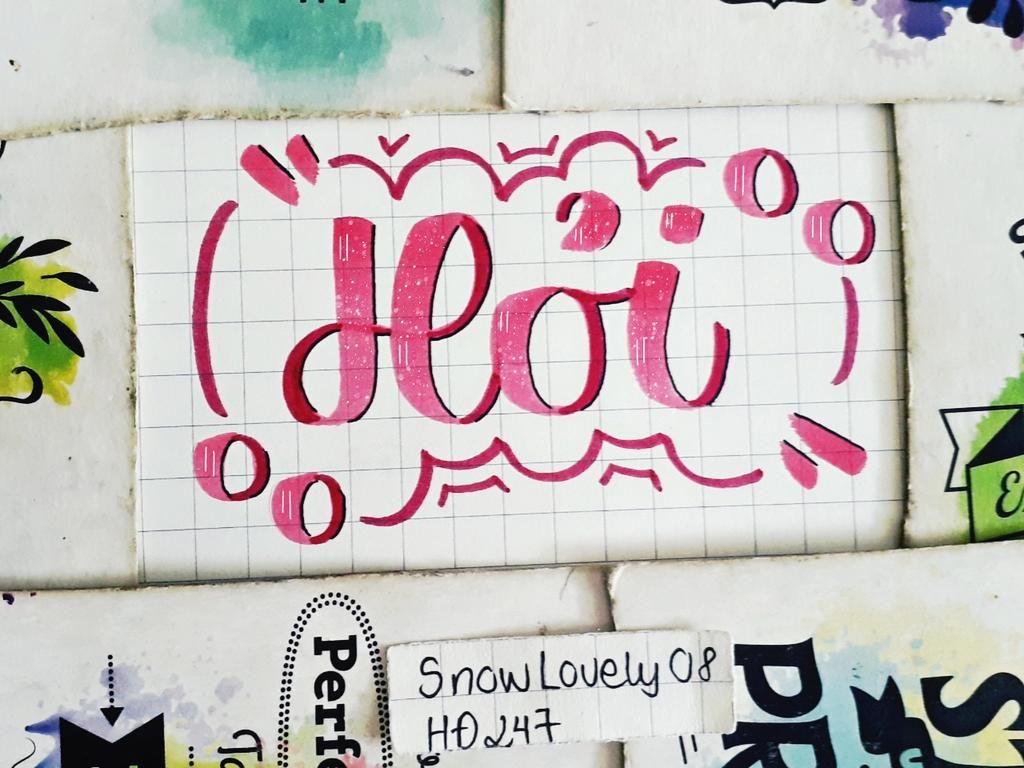 Hỏi
SnowLovely08
HĐ247
Perfe